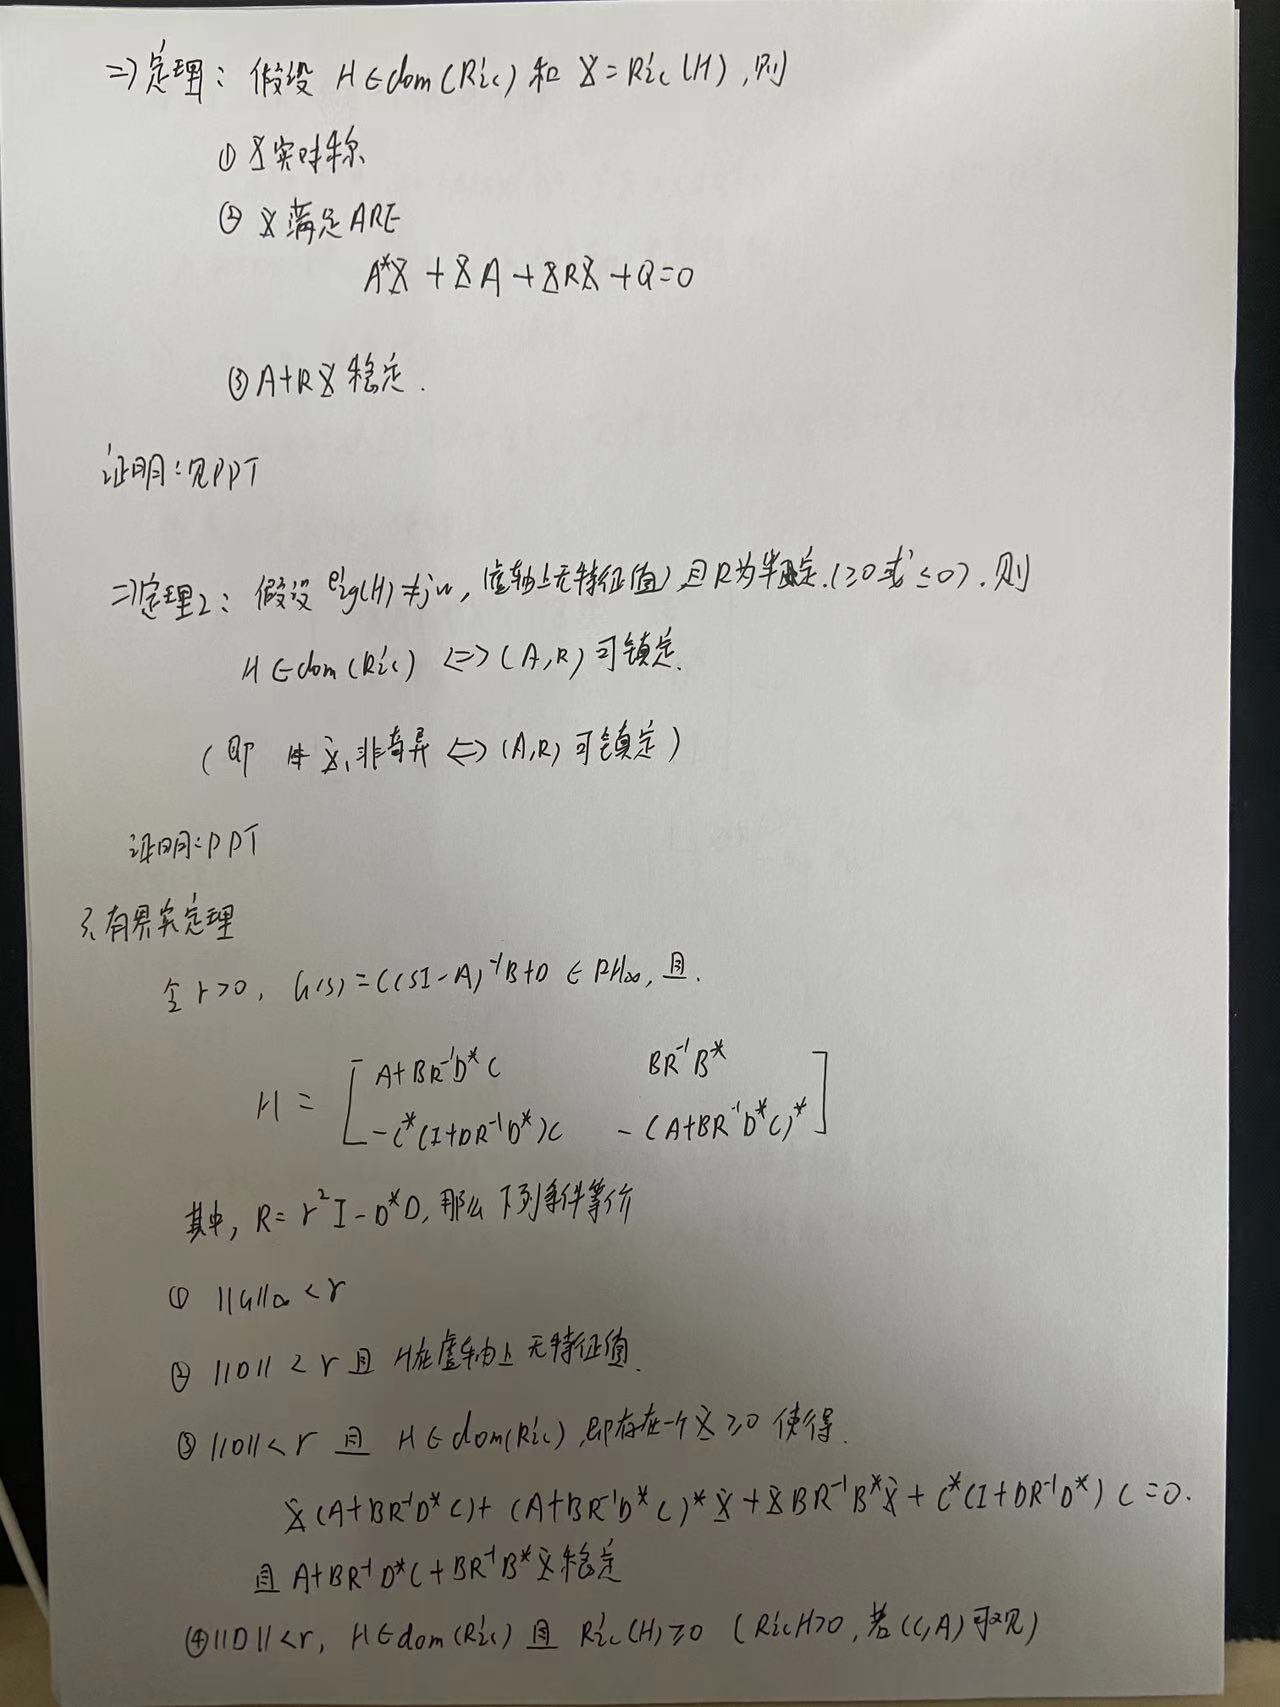 ⇒定理：假设 H∈dom(Ric) 和 X=Ric(H),则
① X实对称
② X满足ARE
A*X+XA+XRX+Q=0
③ A+RX稳定.
证明:见PPT
⇒定理2：假设 eig(H)≠jw,(虚轴上无特征值)且R为半定.(≥0或≤0).则
H∈dom(Ric) ⇔(A,R)可镇定.
(即 X₁非奇异⇔(A,R)可镇定)
证明:PPT
3、有界实定理
令r>0, G(s)=C(SI-A)⁻¹B+D ∈RH∞,且.
H= [ A+BR⁻¹D*C BR⁻¹B*
-C*(I+DR⁻¹D*)C -(A+BR⁻¹D*C)* ]
其中, R=r²I-D*D,那么下列条件等价
① ||G||∞<r
② ||D||<r且H在虚轴上无特征值.
③ ||D||<r 且 H∈dom(Ric),即存在一个X≥0使得.
X(A+BR⁻¹D*C)+(A+BR⁻¹D*C)*X+XBR⁻¹B*X+C*(I+DR⁻¹D*)C=0.
且 A+BR⁻¹D*C+BR⁻¹B*X稳定
④ ||D||<r, H∈dom(Ric) 且 Ric(H)≥0 (RicH>0,若(C,A)可观)